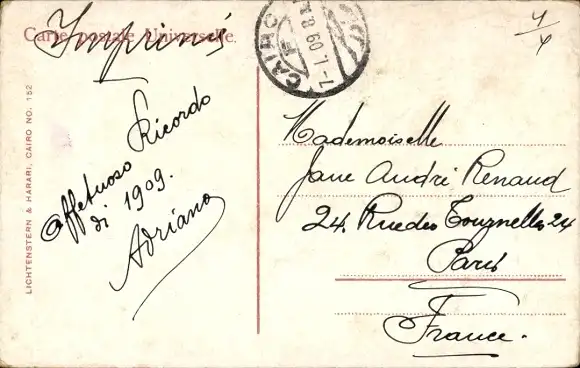 Imprimés
Carte postale Universelle.
CAIRO
7-I.09.8
4/4
LICHTENSTERN & HARARI, CAIRO NO. 152
Ricordo
affetuoso
di 1909.
Adriano
Mademoiselle
Jane André Renaud
24, Rue des Tournelles 24
Paris
France.